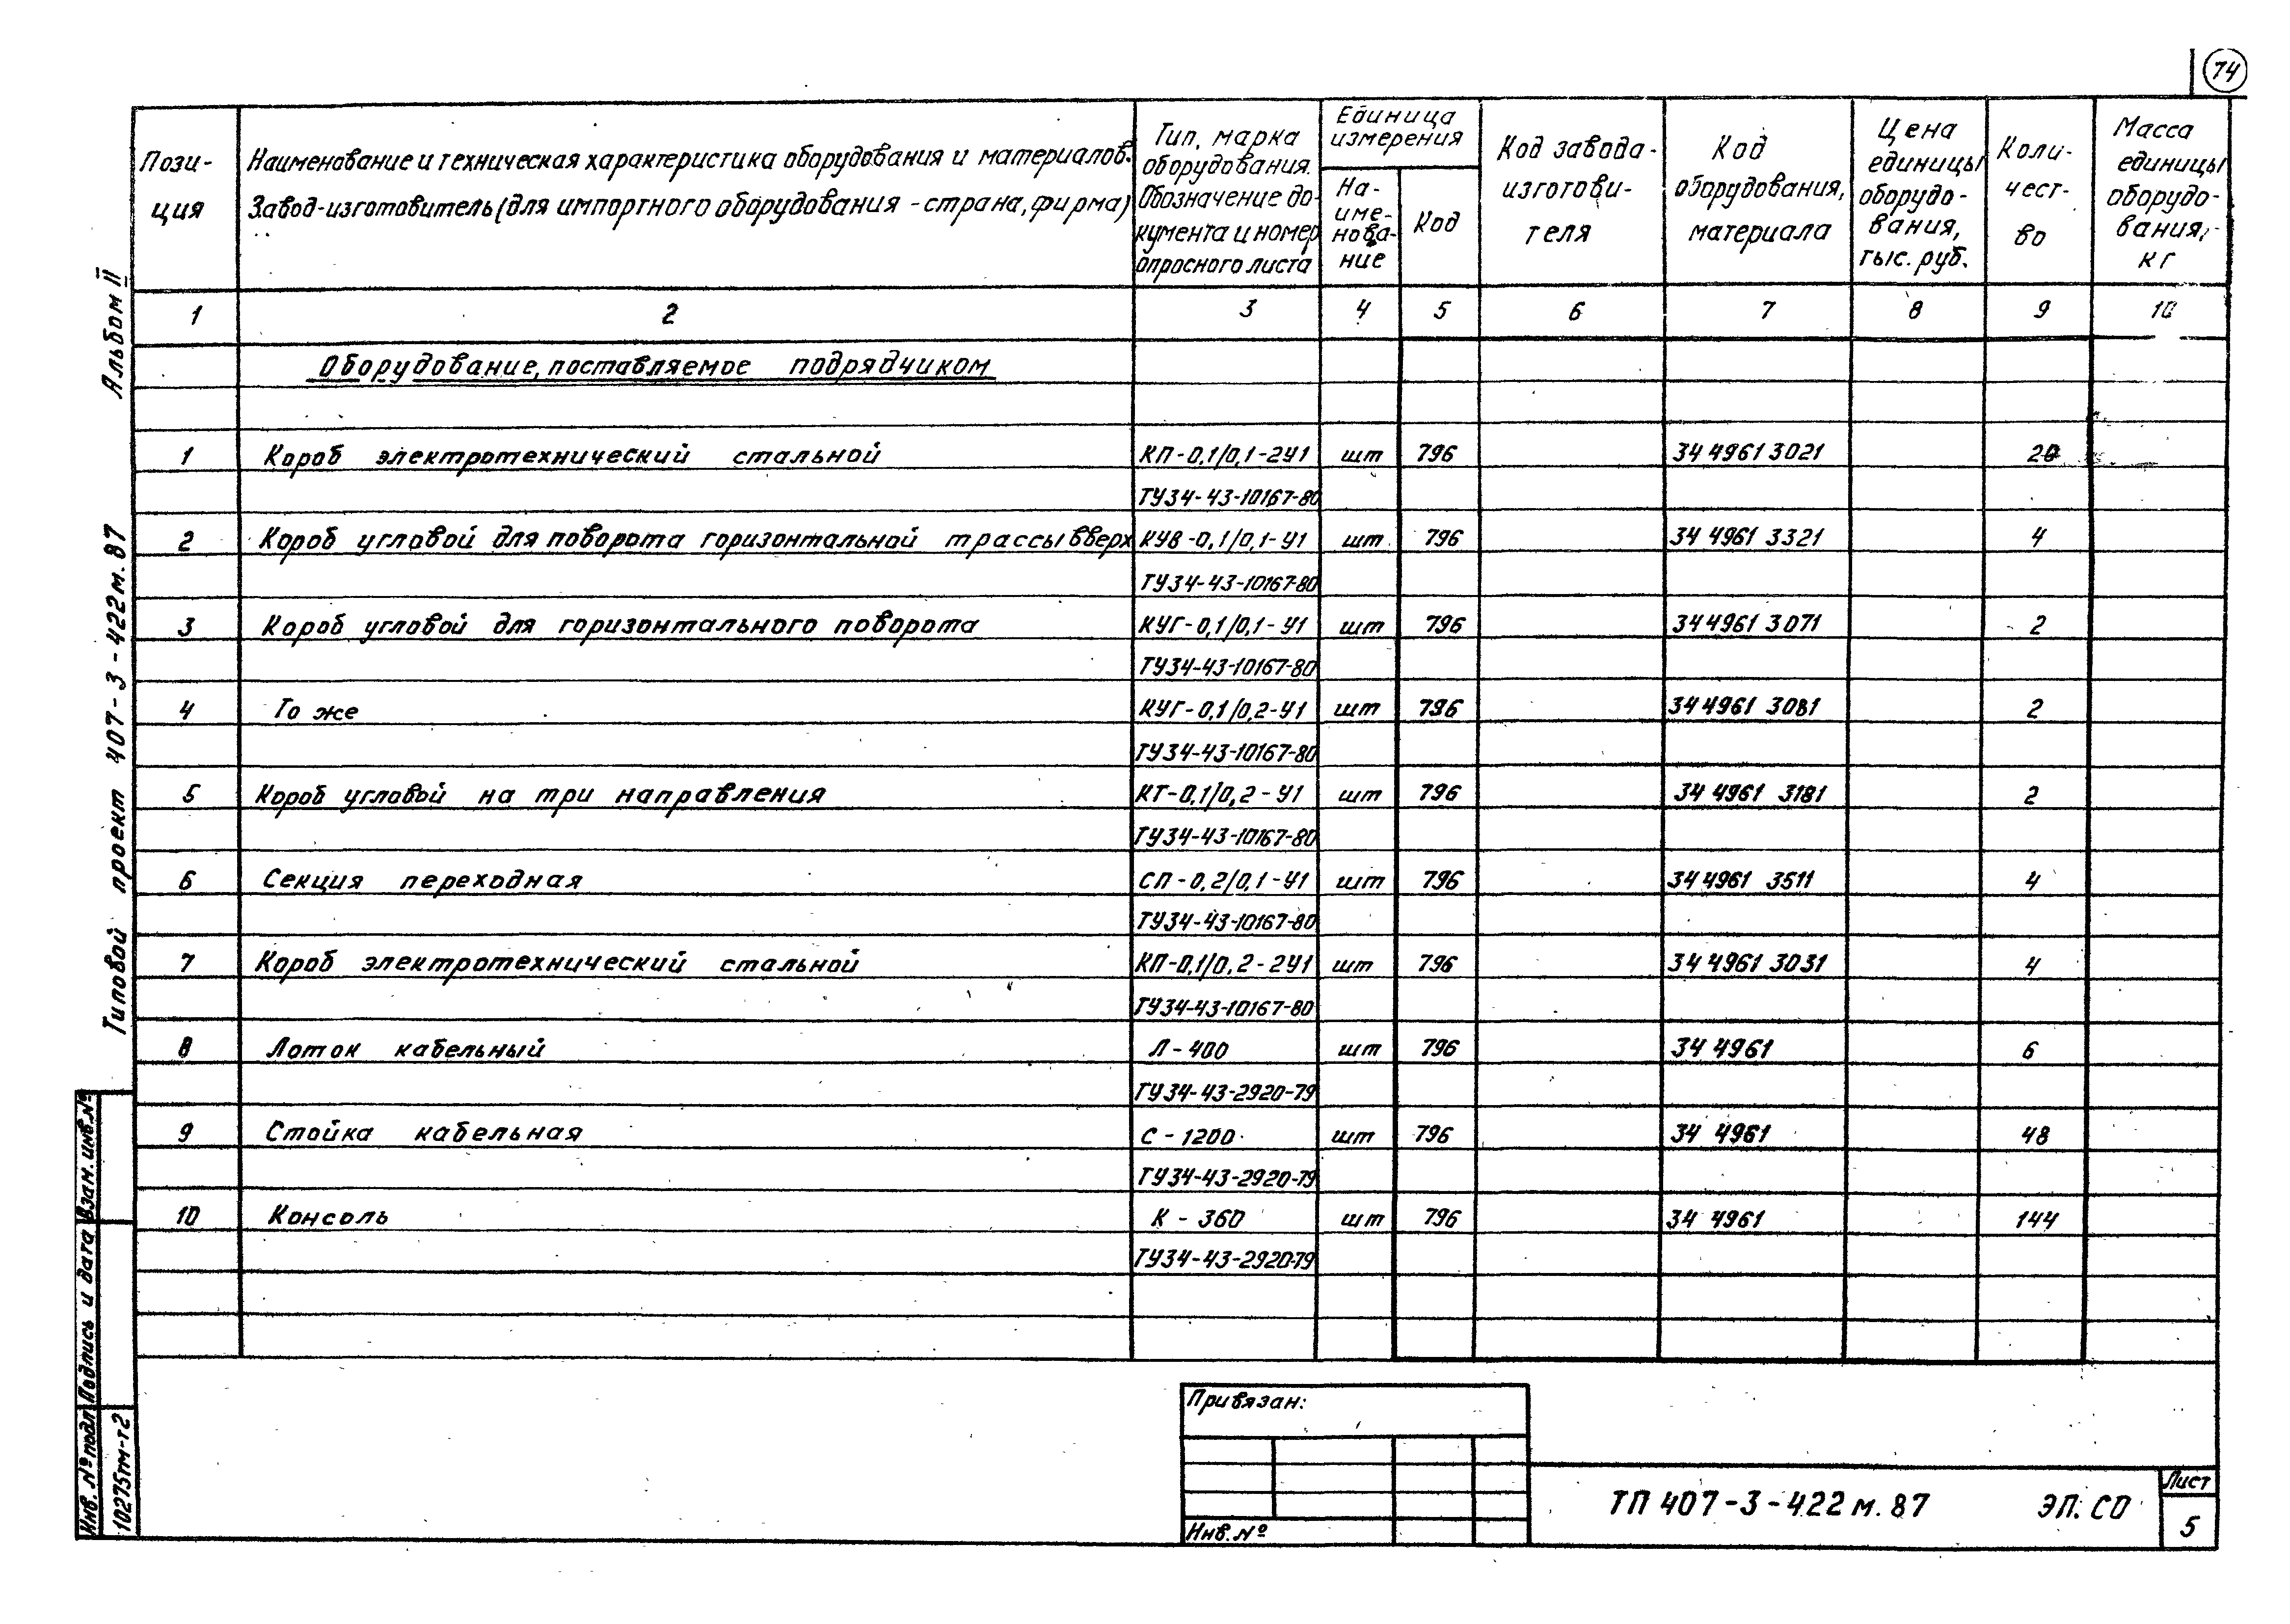 74
Пози-
ция
Наименование и техническая характеристика оборудования и материалов.
Завод-изготовитель (для импортного оборудования - страна, фирма)
Тип, марка
оборудования.
Обозначение до-
кумента и номер
опросного листа
Единица
измерения
На-
име-
нова-
ние
Код
Код завода-
изготови-
теля
Код
оборудования,
материала
Цена
единицы
оборудо-
вания,
тыс. руб.
Коли-
чест-
во
Масса
единицы
оборудо-
вания,
кг
1 2 3 4 5 6 7 8 9 10
Оборудование, поставляемое подрядчиком
1 Короб электротехнический стальной КП-0,1/0,1-2У1 шт 796 34 4961 3021 20
ТУ34-43-10167-80
2 Короб угловой для поворота горизонтальной трассы вверх КУВ-0,1/0,1-У1 шт 796 34 4961 3321 4
ТУ34-43-10167-80
3 Короб угловой для горизонтального поворота КУГ-0,1/0,1-У1 шт 796 34 4961 3071 2
ТУ34-43-10167-80
4 То же КУГ-0,1/0,2-У1 шт 796 34 4961 3081 2
ТУ34-43-10167-80
5 Короб угловой на три направления КТ-0,1/0,2-У1 шт 796 34 4961 3181 2
ТУ34-43-10167-80
6 Секция переходная СП-0,2/0,1-У1 шт 796 34 4961 3511 4
ТУ34-43-10167-80
7 Короб электротехнический стальной КП-0,1/0,2-2У1 шт 796 34 4961 3031 4
ТУ34-43-10167-80
8 Лоток кабельный Л-400 шт 796 34 4961 6
ТУ34-43-2920-79
9 Стойка кабельная С-1200 шт 796 34 4961 48
ТУ34-43-2920-79
10 Консоль К-360 шт 796 34 4961 144
ТУ34-43-2920-79
Типовой проект 407-3-422м.87 Альбом II
Инв. № подл. Подпись и дата Взам. инв. №
10275тм-т2
Привязан:
Инв. №
ТП 407-3-422м.87 ЭП. СО
Лист
5